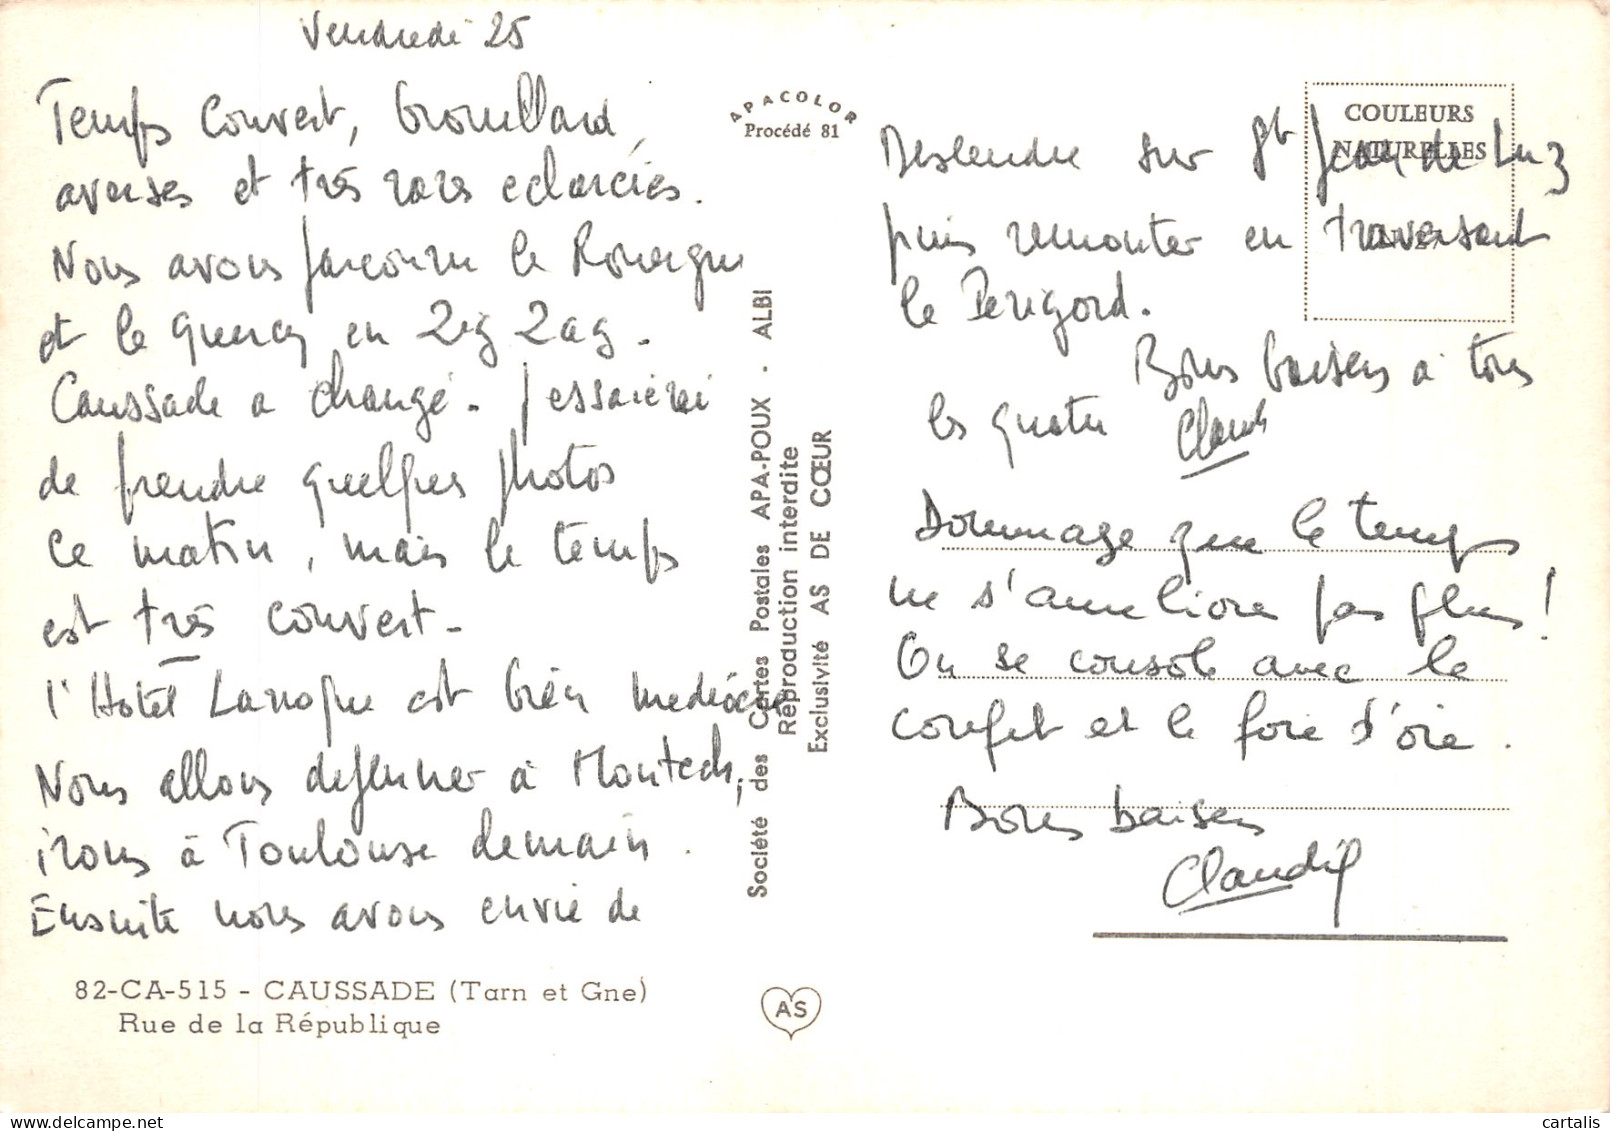 Vendredi 25
Temps couvert, brouillard,
averses et très rares eclarcies.
Nous avons parcouru le Rouergue
et le Quercy en Zig Zag.
Caussade a changé. J'essaierai
de prendre quelques photos
ce matin, mais le temps
est très couvert.
l'Hôtel Larroque est bien mediocre
Nous allons dejeuner à Montech,
irons à Toulouse demain.
Ensuite nous avons envie de
82-CA-515 - CAUSSADE (Tarn et Gne)
Rue de la République
APACOLOR
Procédé 81
Société des Cartes Postales APA-POUX . ALBI
Reproduction interdite
Exclusivité AS DE CŒUR
AS
COULEURS
NATURELLES
Descendre sur St Jean de Luz
puis remonter en traversant
le Perigord.
Bons baisers à tous
les quatre Claude
Dommage que le temps
ne s'ameliore pas plus!
On se console avec le
confit et le foie d'oie.
Bons baisers